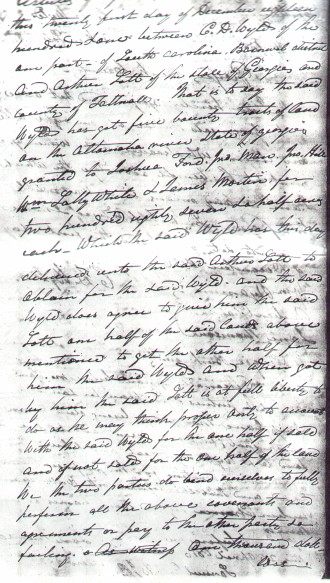 this twenty first day of December eighteen
hundred & one between E. D. Wyld of the
one part - of South Carolina Barnwell district
and Arthur Lott of the state of Georgia and
county of Tattnall That is to say the said
Wyld has got five bounty tracts of land
on the Altamaha river State of georgia
granted to Joshua Ford, Jno. Mann, Jno. Hall
Wm Lally White & James Martin for
two hundred eighty seven & a half acres
each. Which the said Wyld has this day
delivered unto the said Arthur Lott to
obtain for the said Wyld. and the said
Wyld does agree to give him the said
Lott one half of the said lands above
mentioned to get the other half for
him the said Wyld and when got
by him the said Lott is at full liberty to
do as he may think proper only to account
with the said Wyld for the one half if sold
and if not sold for the one half of the land
We the two parties do bind ourselves to fully
perform all the above covenants and
agreements or pay to the other party so
failing. As witness One thousand